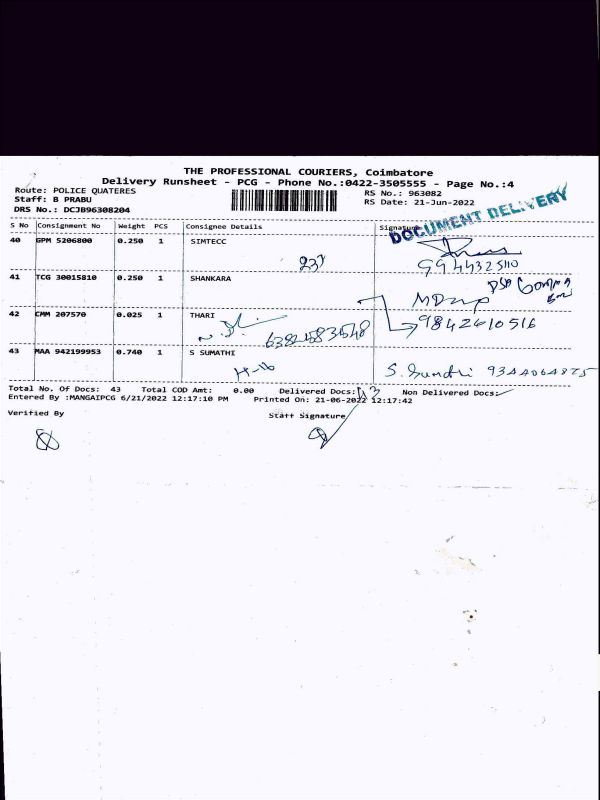 THE PROFESSIONAL COURIERS, Coimbatore
Delivery Runsheet - PCG - Phone No.:0422-3505555 - Page No.:4
Route: POLICE QUATERES
RS No.: 963082
Staff: B PRABU
RS Date: 21-Jun-2022
DRS No.: DCJB96308204
DOCUMENT DELIVERY
S No Consignment No Weight PCS Consignee Details Signature
40 GPM 5206800 0.250 1 SIMTECC
237
9944325110
41 TCG 30015810 0.250 1 SHANKARA
42 CMM 207570 0.025 1 THARI
9842610516
43 MAA 942199953 0.740 1 S SUMATHI
H-16
S. Sumathi 9344064875
Total No. Of Docs: 43 Total COD Amt: 0.00 Delivered Docs: Non Delivered Docs:
Entered By :MANGAIPCG 6/21/2022 12:17:10 PM Printed On: 21-06-2022 12:17:42
Verified By Staff Signature